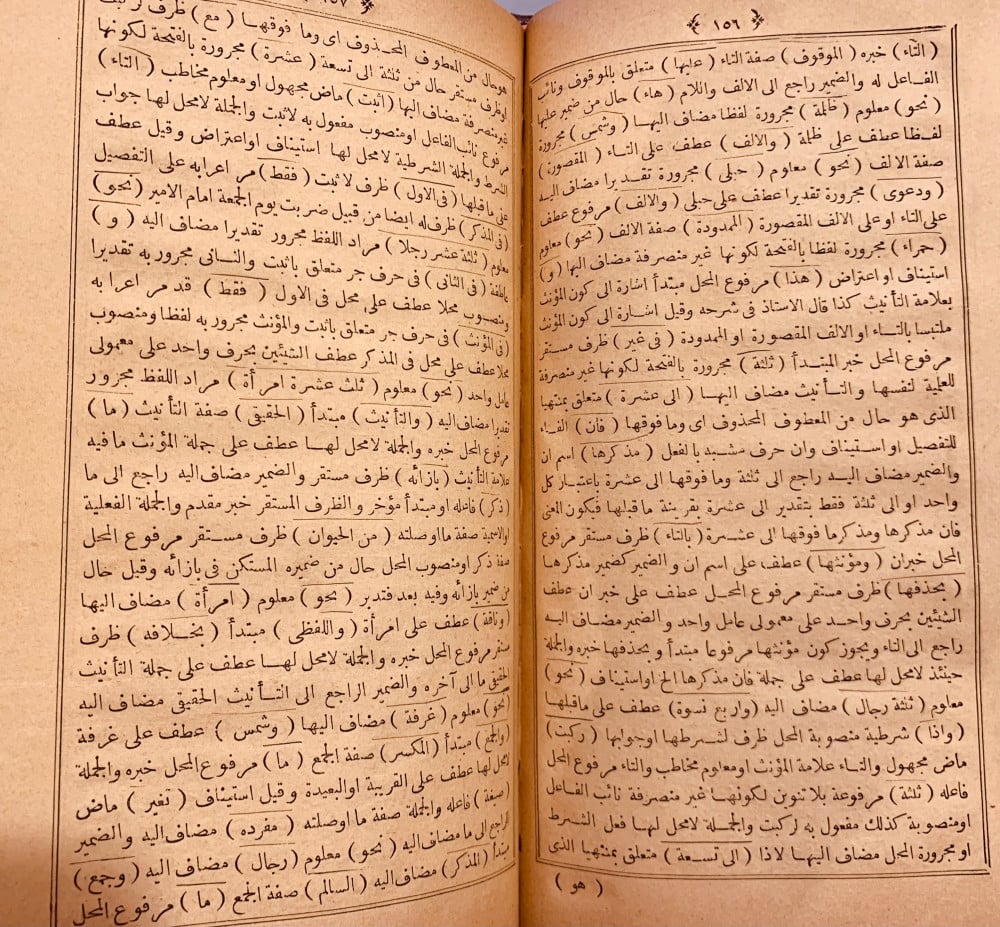 ﴿ ١٥٦ ﴾
( التاء ) خبره ( الموقوف ) صفة التاء ( عليها ) متعلق بالموقوف ونائب
الفاعل له والضمير راجع الى الالف واللام ( هاء ) حال من ضمير عليها
( نحو ) معلوم ( ظلمة ) مجرورة لفظا مضاف اليها ( وشمس ) مجرورة
لفظا عطف على ظلمة ( والالف ) عطف على التاء ( المقصورة )
صفة الالف ( نحو ) معلوم ( حبلى ) مجرورة تقديرا مضاف اليه
( ودعوى ) مجرورة تقديرا عطف على حبلى ( والالف ) مرفوع عطف
على التاء او على الالف المقصورة ( الممدودة ) صفة الالف ( نحو ) معلوم
( حمراء ) مجرورة لفظا بالفتحة لكونها غير منصرفة مضاف اليها ( و )
استيناف او اعتراض ( هذا ) مرفوع المحل مبتدأ اشارة الى كون المؤنث
بعلامة التأنيث كذا قال الاستاذ فى شرحه وقيل اشارة الى كون المؤنث
ملتبسا بالتاء او الالف المقصورة او الممدودة ( فى غير ) ظرف مستقر
مرفوع المحل خبر المبتدأ ( ثلثة ) مجرورة بالفتحة لكونها غير منصرفة
للعلمية لنفسها والتأنيث مضاف اليها ( الى عشرة ) متعلق بمنتهيا
الذى هو حال من المعطوف المحذوف اى وما فوقها ( فان ) الفاء
للتفصيل او استيناف وان حرف مشبه بالفعل ( مذكرها ) اسم ان
والضمير مضاف اليه راجع الى ثلثة وما فوقها الى عشرة باعتبار كل
واحد او الى ثلثة فقط بتقدير الى عشرة بقرينة ما قبلها فيكون المعنى
فان مذكرها ومذكر ما فوقها الى عشرة ( بالتاء ) ظرف مستقر مرفوع
المحل خبران ( ومؤنثها ) عطف على اسم ان و الضمير كضمير مذكرها
( بحذفها ) ظرف مستقر مرفوع المحل عطف على خبر ان عطف
الشيئين بحرف واحد على معمولى عامل واحد و الضمير مضاف اليه
راجع الى التاء ويجوز كون مؤنثها مرفوعا مبتدأ و بحذفها خبره والجملة
حينئذ لامحل لها عطف على جملة فان مذكرها الخ او استيناف ( نحو )
معلوم ( ثلثة رجال ) مضاف اليه ( واربع نسوة ) عطف على ماقبلها
( واذا ) شرطية منصوبة المحل ظرف لشرطها اوجوابها ( ركبت )
ماض مجهول والتاء علامة المؤنث اومعلوم مخاطب والتاء مرفوع المحل
فاعله ( ثلثة ) مرفوعة بلا تنوين لكونها غير منصرفة نائب الفاعل
اومنصوبة كذلك مفعول به لركبت والجملة لامحل لها فعل الشرط
او مجرورة المحل مضاف اليها لاذا ( الى تسعة ) متعلق بمنتهيا الذى
( هو )
﴿ ١٥٧ ﴾
هو حال من المعطوف المحذوف اى وما فوقها ( مع ) ظرف
او ظرف مستقر حال من ثلثة الى تسعة ( عشرة ) مجرورة بالفتحة لكونها
غير منصرفة مضاف اليها ( اثبت ) ماض مجهول او معلوم مخاطب ( التاء )
مرفوع نائب الفاعل او منصوب مفعول به لاثبت والجملة لامحل لها جواب
الشرط والجملة الشرطية لامحل لها استيناف او اعتراض وقيل عطف
على ماقبلها ( فى الاول ) ظرف لاثبت ( فقط ) مر اعرابه على التفصيل
( فى المذكر ) ظرف له ايضا من قبيل ضربت يوم الجمعة امام الامير ( نحو )
معلوم ( ثلثة عشر رجلا ) مراد اللفظ مجرور تقديرا مضاف اليه ( و )
عاطفة ( فى الثانى ) فى حرف جر متعلق باثبت والثانى مجرور به تقديرا
ومنصوب محلا عطف على محل فى الاول ( فقط ) قد مر اعرابه
( فى المؤنث ) فى حرف جر متعلق باثبت والمؤنث مجرور به لفظا ومنصوب
محلا عطف على محل فى المذكر عطف الشيئين بحرف واحد على معمولى
عامل واحد ( نحو ) معلوم ( ثلث عشرة امرأة ) مراد اللفظ مجرور
تقديرا مضاف اليه ( والتأنيث ) مبتدأ ( الحقيقى ) صفة التأنيث ( ما )
مرفوع المحل خبره والجملة لامحل لها عطف على جملة المؤنث مافيه
علامة التأنيث ( بازائه ) ظرف مستقر والضمير مضاف اليه راجع الى ما
( ذكر ) فاعله او مبتدأ مؤخر و الظرف المستقر خبر مقدم والجملة الفعلية
اوالاسمية صفة ما اوصلته ( من الحيوان ) ظرف مستقر مرفوع المحل
صفة ذكر اومنصوب المحل حال من ضميره المستكن فى بازائه وقيل حال
من ضمير بازائه وفيه بعد فتدبر ( نحو ) معلوم ( امرأة ) مضاف اليها
( وناقة ) عطف على امرأة ( و اللفظى ) مبتدأ ( بخلافه ) ظرف
مستقر مرفوع المحل خبره والجملة لامحل لها عطف على جملة التأنيث
الحقيقى ما الى آخره والضمير الراجع الى التأنيث الحقيقى مضاف اليه
( نحو ) معلوم ( غرفة ) مضاف اليها ( وشمس ) عطف على غرفة
( والجمع ) مبتدأ ( المكسر ) صفة الجمع ( ما ) مرفوع المحل خبره والجملة
لامحل لها عطف على القريبة اوالبعيدة و قيل استيناف ( تغير ) ماض
( صيغة ) فاعله والجملة صفة ما اوصلته ( مفرده ) مضاف اليه و الضمير
الراجع الى ما مضاف اليه ( نحو ) معلوم ( رجال ) مضاف اليه ( وجمع )
مبتدأ ( المذكر ) مضاف اليه ( السالم ) صفة الجمع ( ما ) مرفوع المحل